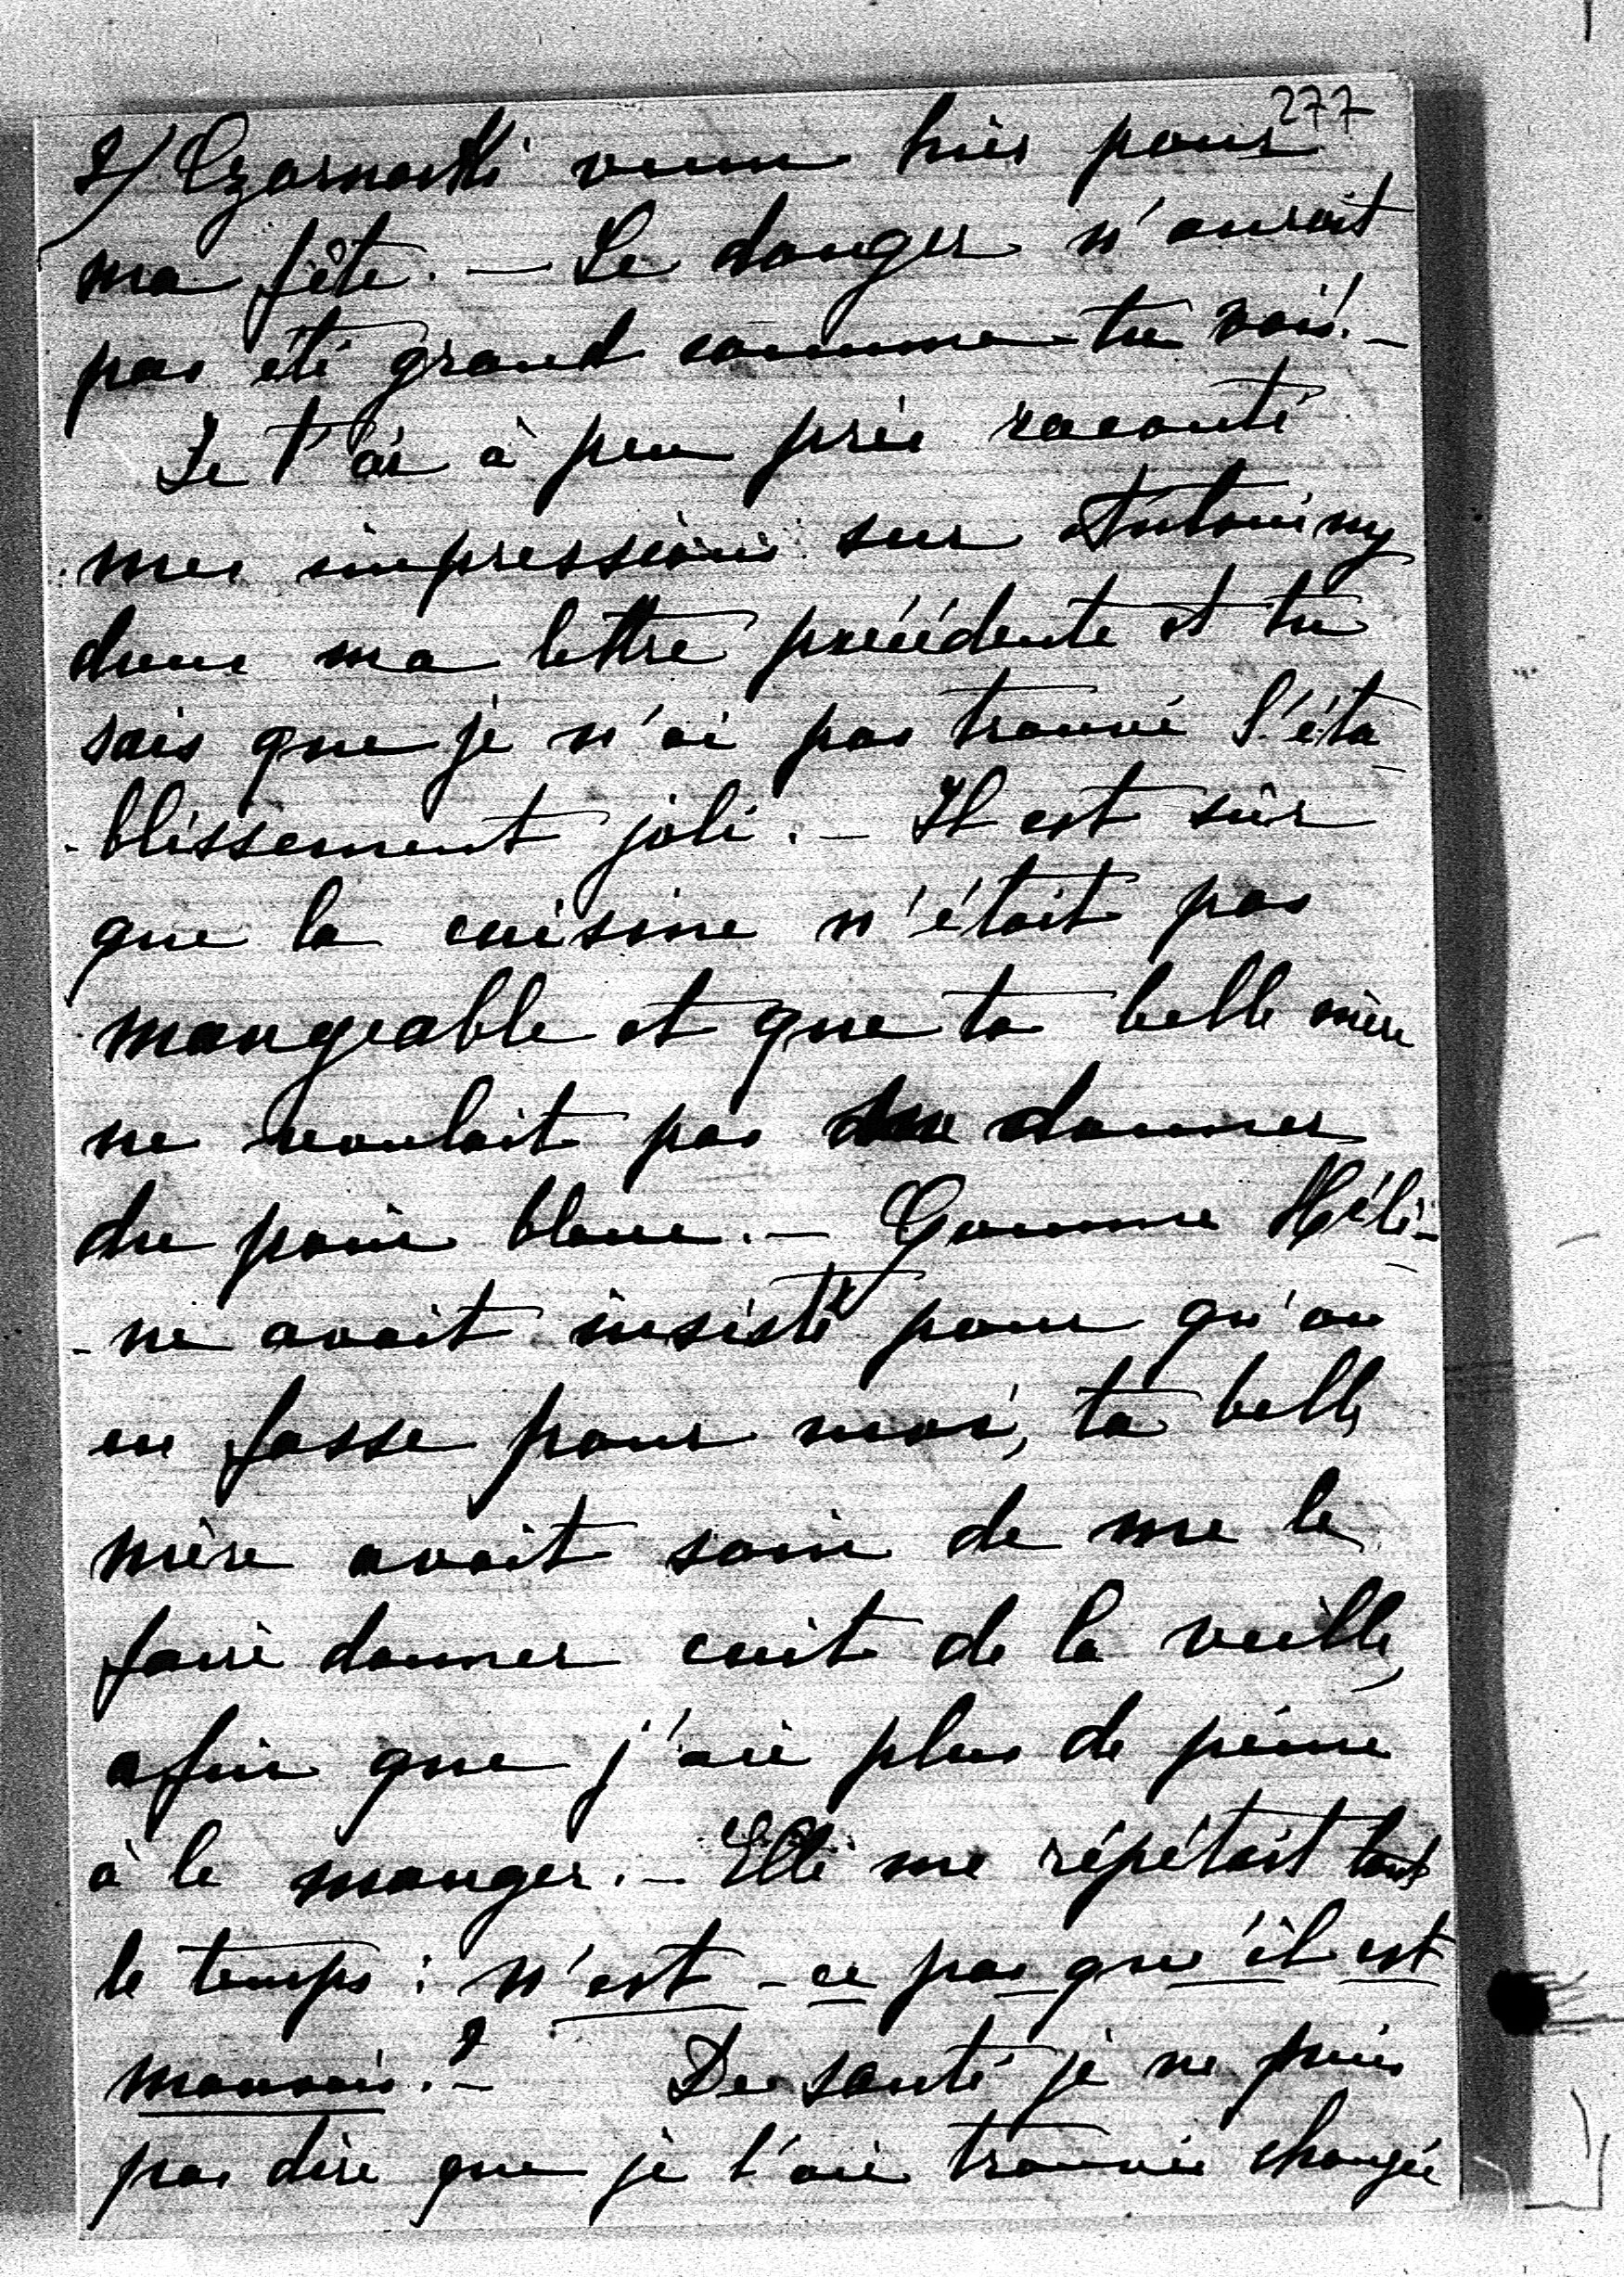 277
2/ Czarnowski venu hier pour
ma fête. — Le danger n'aurait
pas été grand comme tu vois! —
Je t'ai à peu près raconté
mes impressions sur Antoniny
dans ma lettre précédente et tu
sais que je n'ai pas trouvé l'éta-
-blissement joli. — Il est sûr
que la cuisine n'était pas
mangeable et que ta belle mère
ne voulait pas me donner
du pain blanc. — Comme Hélè-
-ne avait insisté pour qu'on
en fasse pour moi, ta belle
mère avait soin de me le
faire donner cuit de la veille,
afin que j'aie plus de peine
à le manger. — Elle me répétait tout
le temps : n'est-ce pas qu'il est
mauvais? — De santé je ne puis
pas dire que je l'aie trouvée changée